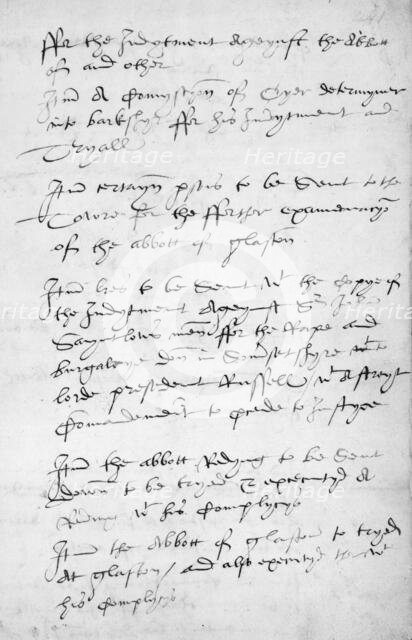 ffor the Indytment Ageynst the Abbott
of and other
Itm A Comyssyon of Oyer determyner
into barkshyr ffor his Indytment and
Tryall
Itm certayn to be Sent to the
Towre for the fferther examenacyon
of the abbott of glaston
Itm to be Sent wt the Copye of
the Indytment Ageynst
men ffor the Rape and
burgalarye don in Somersetshyre
lorde president Russell wt A streyt
Comandement to to Justyce
Itm the abbott Redyng to be Sent
down to be tryed & executyd A
Redyng wt his Complycys
Itm the Abbott of glaston to tryed
At glaston / and also executyd wt
his Complycys